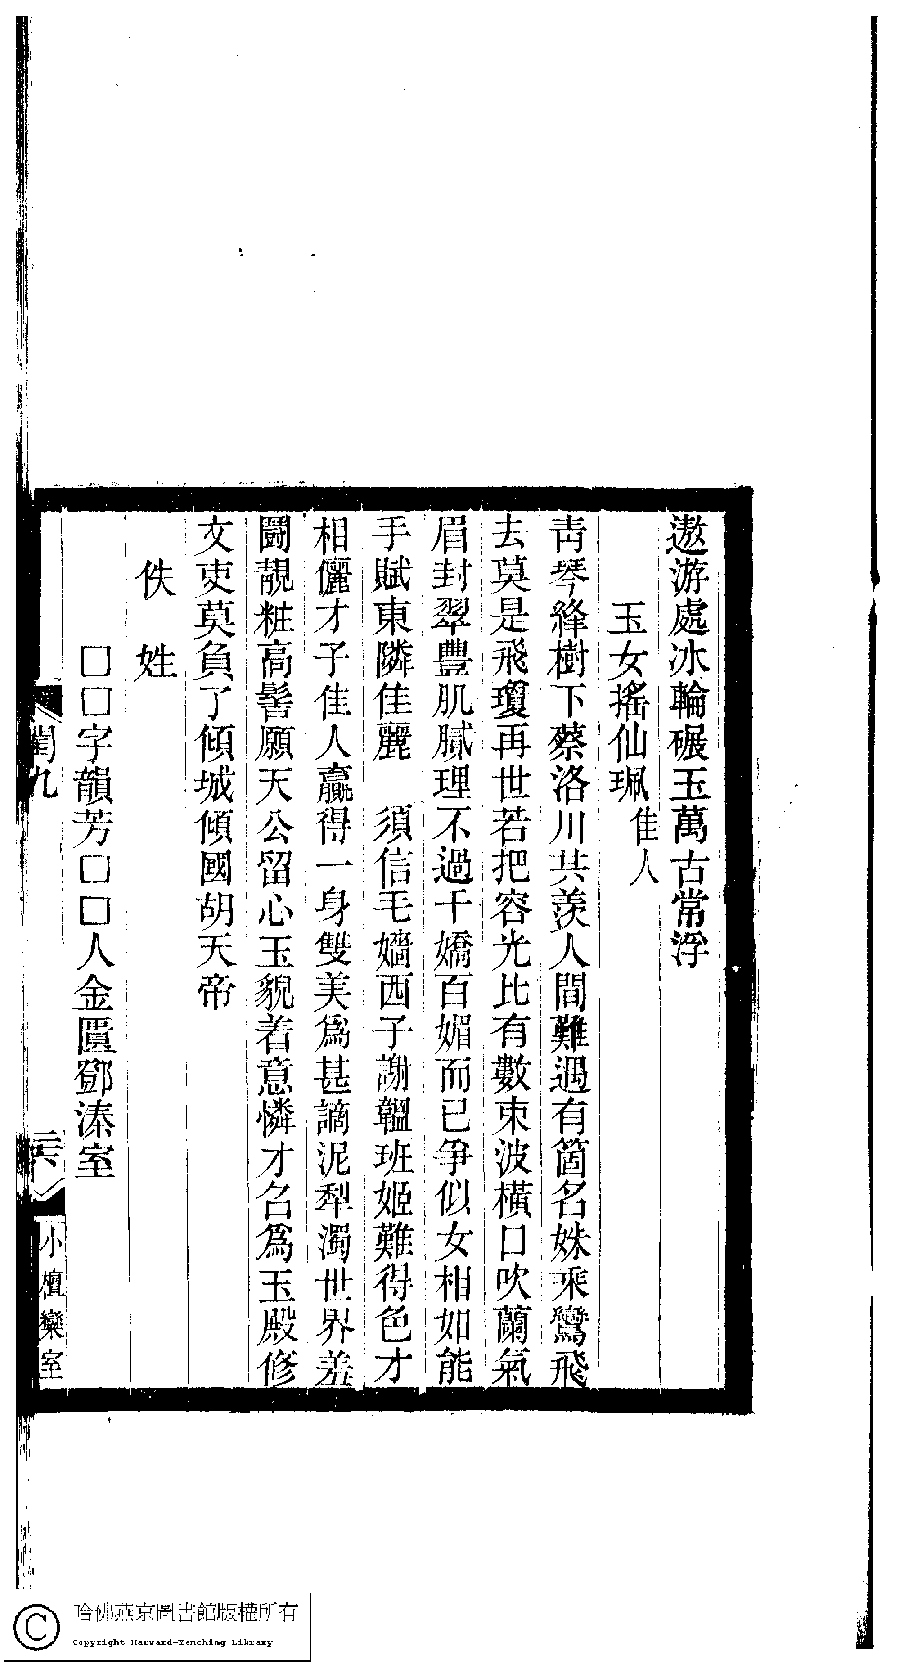 遨游處冰輪碾玉萬古常浮
玉女搖仙珮 佳人
靑琴絳樹下蔡洛川共羨人間難遇有箇名姝乘鸞飛
去莫是飛瓊再世若把容光比有數朿波橫口吹蘭氣
眉封翠豐肌膩理不過千嬌百媚而已爭似女相如能
手賦東隣佳麗 須信毛嬙西子謝韞班姬難得色才
相儷才子佳人贏得一身雙美爲甚謫泥犁濁世界羞
鬪靚粧高髻願天公留心玉貌着意憐才名爲玉殿修
文吏莫負了傾城傾國胡天帝
佚姓
□□字韻芳□□人金匱鄧溱室
閏九
二六
小檀欒室
哈佛燕京圖書館版權所有
Copyright Harvard-Yenching Library